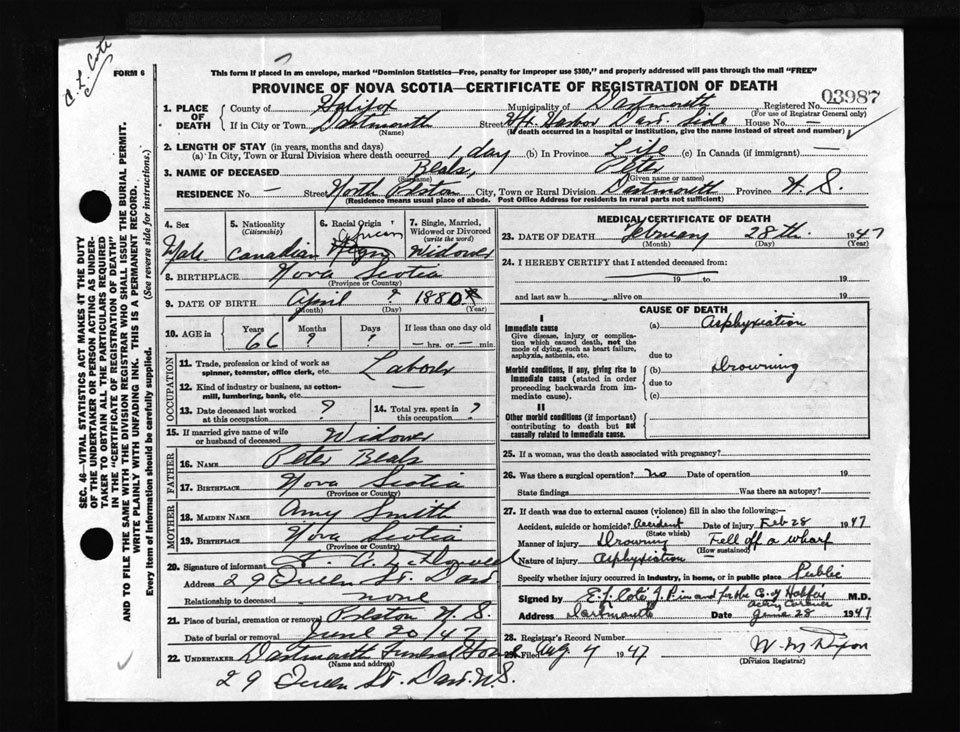 C. L. Cote
FORM 6
This form if placed in an envelope, marked "Dominion Statistics—Free, penalty for improper use $300," and properly addressed will pass through the mail "FREE"
PROVINCE OF NOVA SCOTIA—CERTIFICATE OF REGISTRATION OF DEATH
03987
1. PLACE OF DEATH
County of Halifax Municipality of Dartmouth Registered No.
(For use of Registrar General only)
If in City or Town Dartmouth Street Hfx Harbor Dart. Side House No. —
(Name) (If death occurred in a hospital or institution, give the name instead of street and number)
2. LENGTH OF STAY (in years, months and days)
(a) In City, Town or Rural Division where death occurred 1 day (b) In Province Life (c) In Canada (if immigrant) —
3. NAME OF DECEASED Beals, Peter
(Surname) (Given name or names)
RESIDENCE No. — Street North Preston City, Town or Rural Division Dartmouth Province N.S.
(Residence means usual place of abode. Post Office Address for residents in rural parts not sufficient)
4. Sex
Male
5. Nationality
(Citizenship)
Canadian
6. Racial Origin
African
7. Single, Married, Widowed or Divorced
(write the word)
Widower
8. BIRTHPLACE Nova Scotia
(Province or Country)
9. DATE OF BIRTH April ? 1880
(Month) (Day) (Year)
10. AGE in
Years 66 Months ? Days ? If less than one day old
— hrs. or — min.
OCCUPATION
11. Trade, profession or kind of work as spinner, teamster, office clerk, etc. Labor
12. Kind of industry or business, as cotton-mill, lumbering, bank, etc. —
13. Date deceased last worked at this occupation ?
14. Total yrs. spent in this occupation ?
15. If married give name of wife or husband of deceased Widower
FATHER
16. NAME Peter Beals
17. BIRTHPLACE Nova Scotia
(Province or Country)
MOTHER
18. MAIDEN NAME Amy Smith
19. BIRTHPLACE Nova Scotia
(Province or Country)
20. Signature of informant
Address 29 Queen St. Dart
Relationship to deceased none
21. Place of burial, cremation or removal Preston N.S.
Date of burial or removal June 20/47
22. UNDERTAKER Dartmouth Funeral Home
(Name and address)
29 Queen St. Dart. N.S.
MEDICAL CERTIFICATE OF DEATH
23. DATE OF DEATH February 28th 1947
(Month) (Day) (Year)
24. I HEREBY CERTIFY that I attended deceased from:
19 to 19
and last saw h alive on 19
CAUSE OF DEATH
I
Immediate cause
Give disease, injury or complication which caused death, not the mode of dying, such as heart failure, asphyxia, asthenia, etc.
(a) Asphyxiation
due to
Morbid conditions, if any, giving rise to immediate cause (stated in order proceeding backwards from immediate cause).
(b) Drowning
due to
(c)
II
Other morbid conditions (if important) contributing to death but not causally related to immediate cause.
25. If a woman, was the death associated with pregnancy?
26. Was there a surgical operation? no Date of operation 19
State findings Was there an autopsy?
27. If death was due to external causes (violence) fill in also the following:—
Accident, suicide or homicide? Accident Date of injury Feb 28 1947
(State which)
Manner of injury Drowning Fell off a wharf
(How sustained)
Nature of injury Asphyxiation
Specify whether injury occurred in industry, in home, or in public place Public
Signed by M.D.
Address Dartmouth Date June 28 1947
28. Registrar's Record Number
29. Filed Aug 4 1947 W M Dixon
(Division Registrar)
SEC. 46—VITAL STATISTICS ACT MAKES IT THE DUTY
OF THE UNDERTAKER OR PERSON ACTING AS UNDER-
TAKER TO OBTAIN ALL THE PARTICULARS REQUIRED
IN THE "CERTIFICATE OF REGISTRATION OF DEATH"
AND TO FILE THE SAME WITH THE DIVISION REGISTRAR WHO SHALL ISSUE THE BURIAL PERMIT.
WRITE PLAINLY WITH UNFADING INK. THIS IS A PERMANENT RECORD.
Every item of information should be carefully supplied. (See reverse side for instructions.)